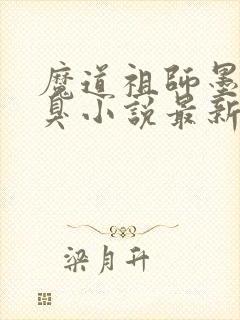 魔道祖師墨
臭小説最新
梁月升